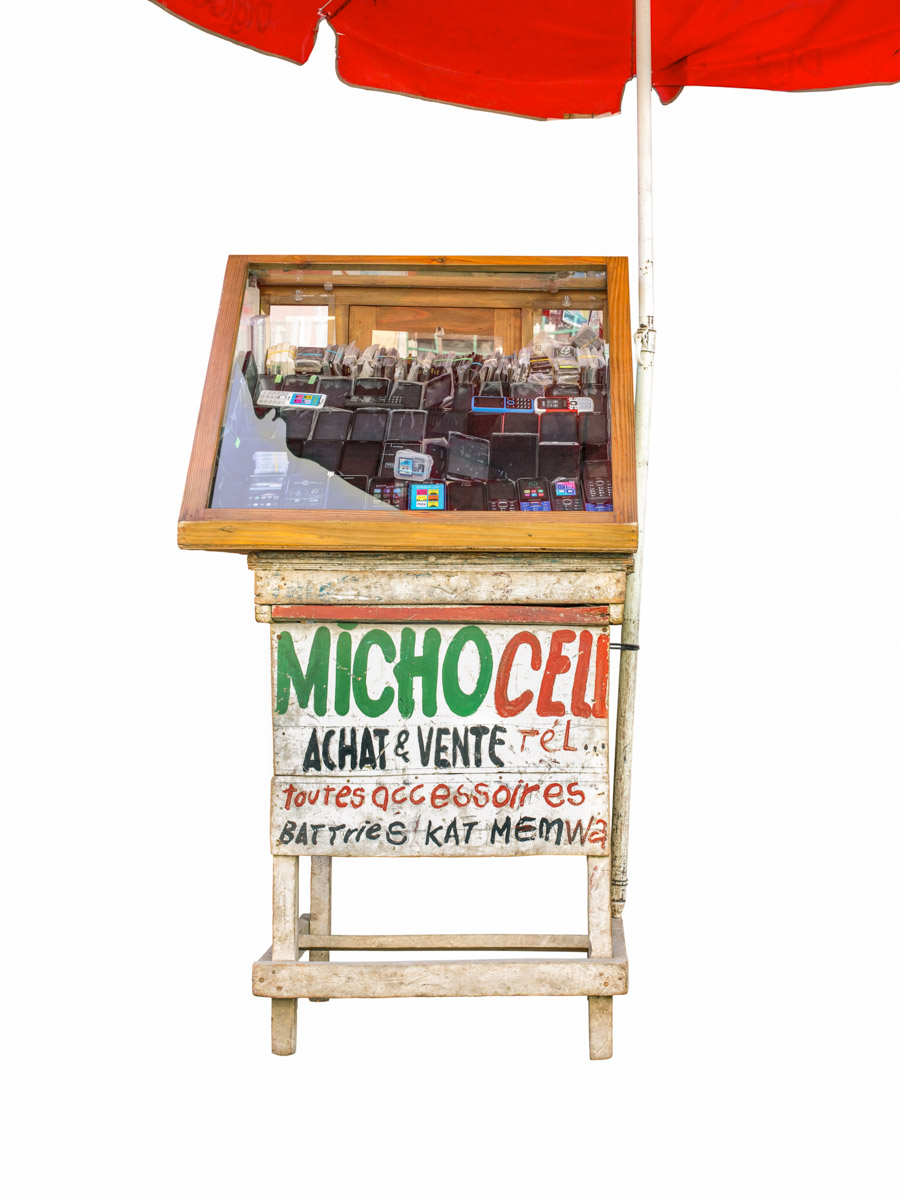 MiCHO CELL
ACHAT & VENTE TéL...
toutes accessoires
BATTrieS KAT MEMWa